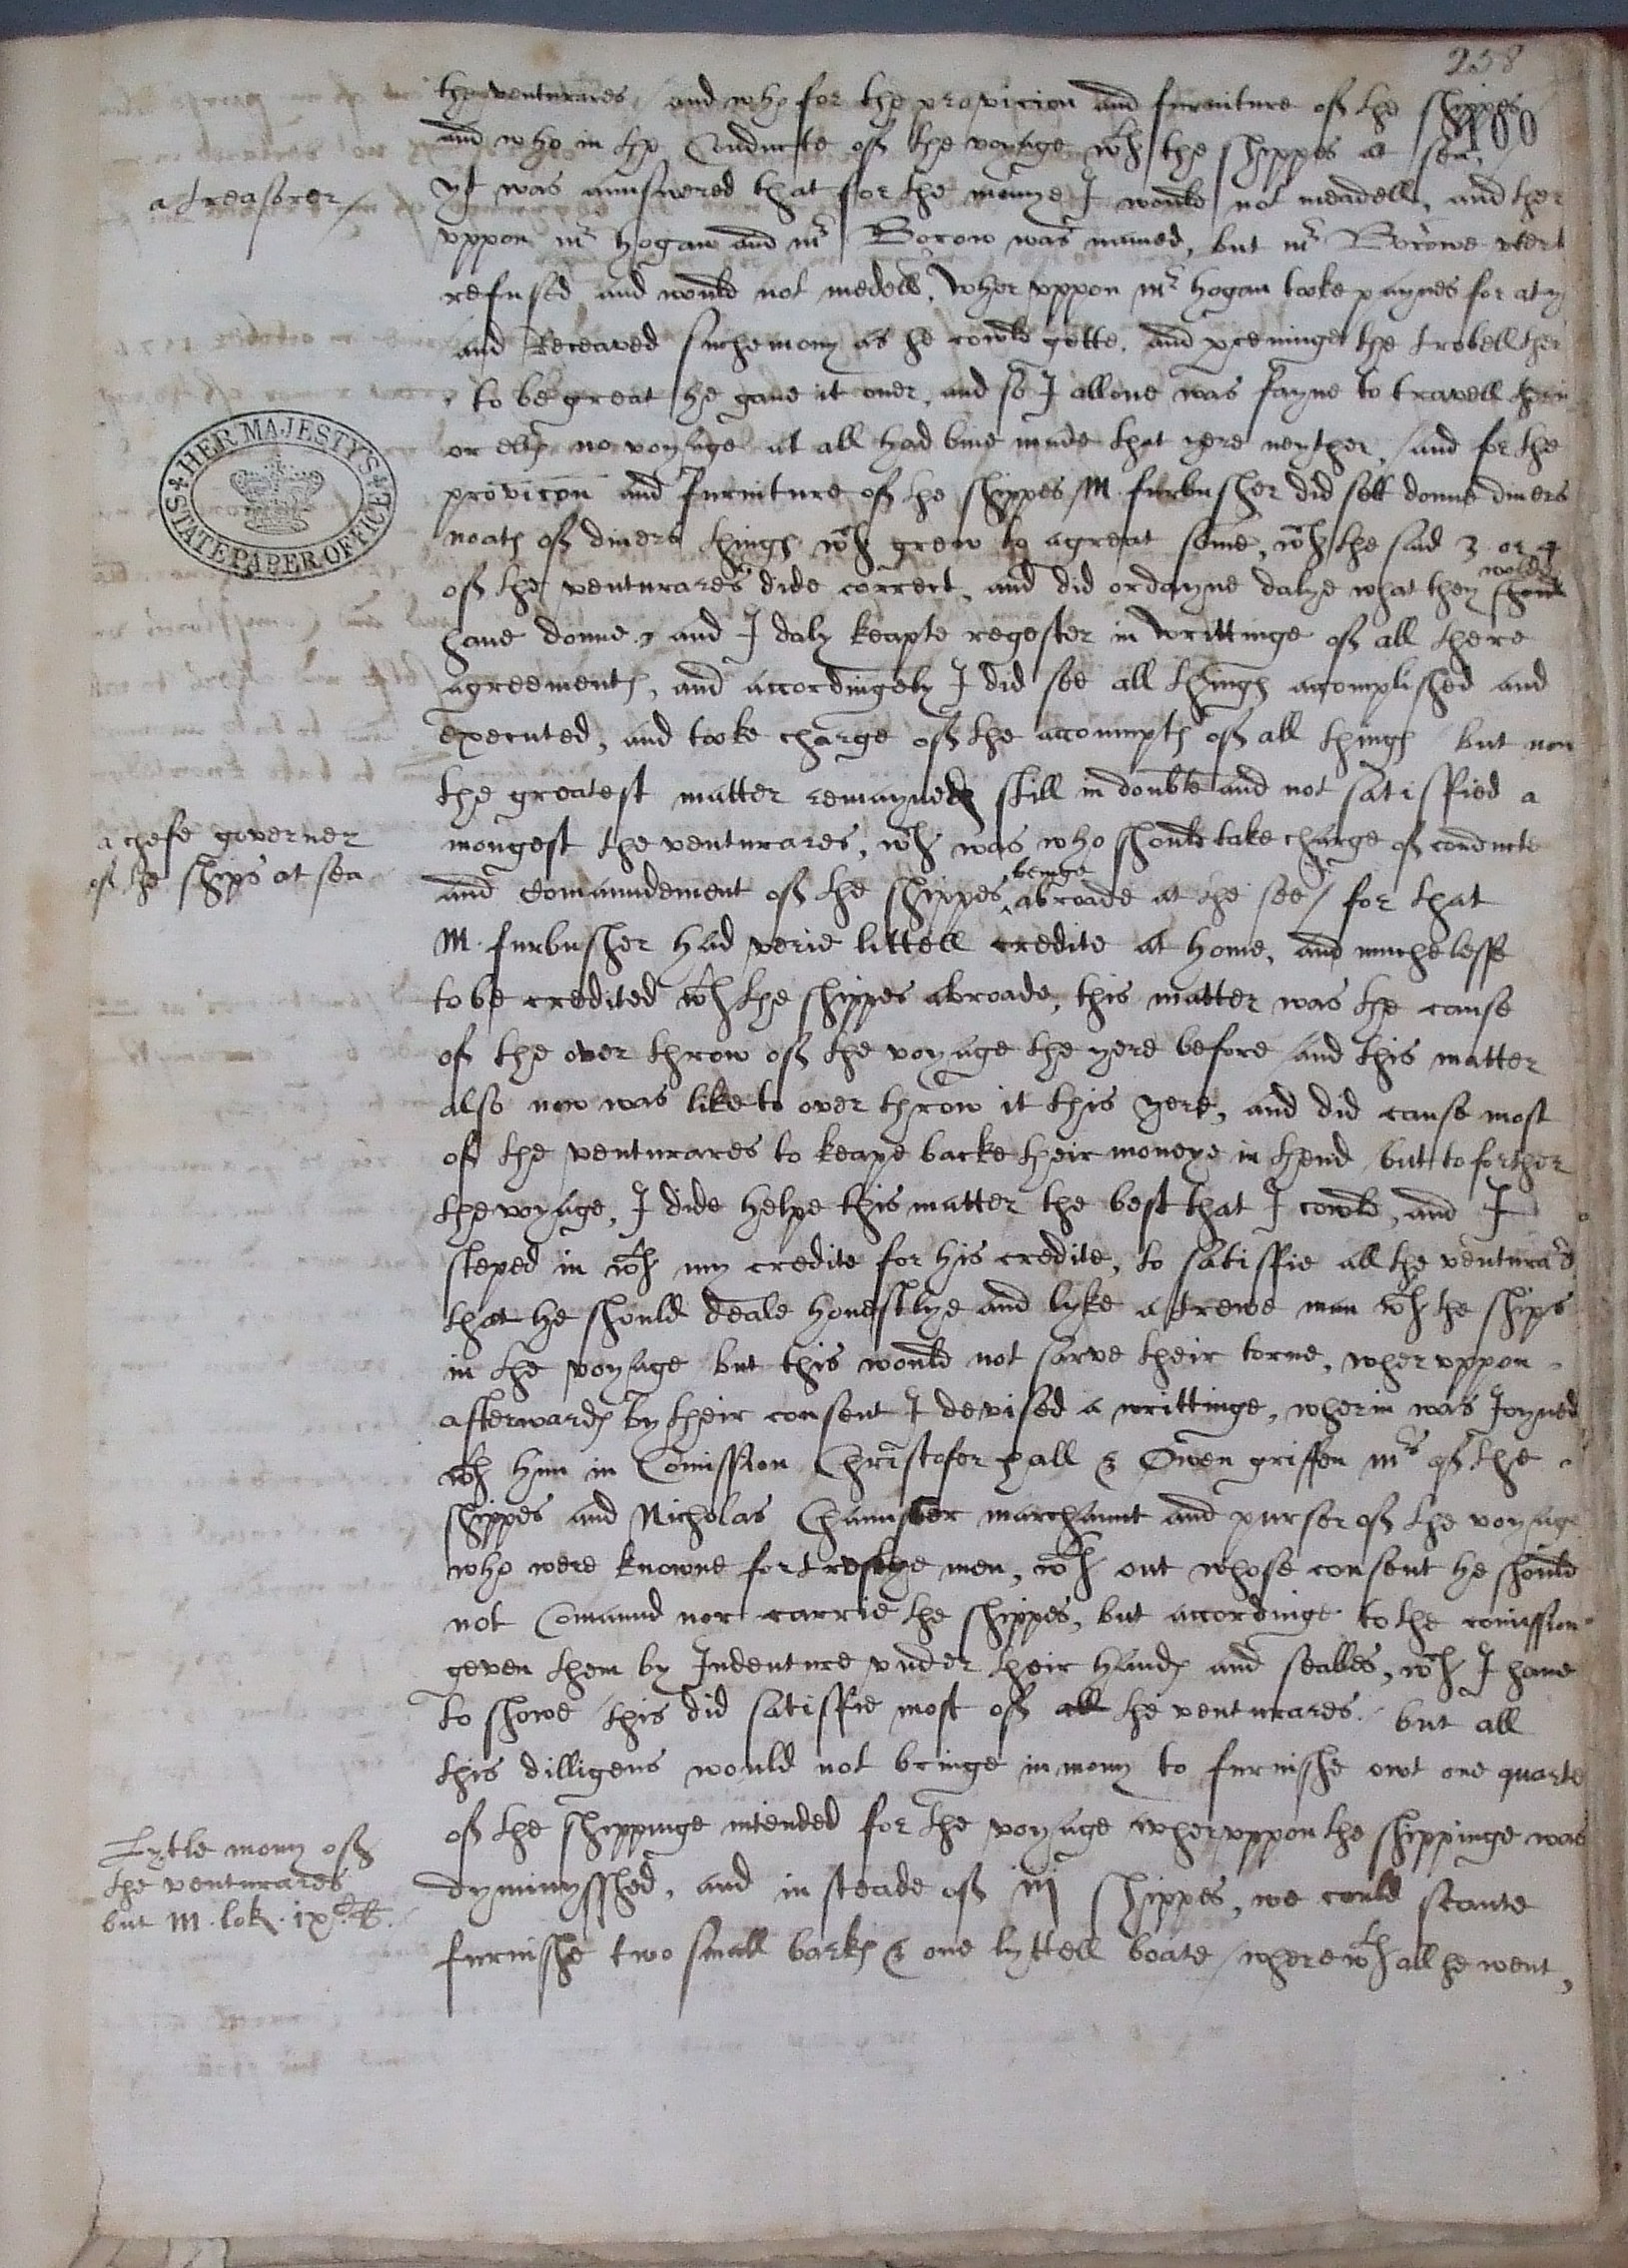 238
100
the venturares, and who for the provicion and furniture off the shippes
and who in the Conducte off the voyage wth the shippes at sea,
a treasorer /
yt was aunswered that for the monye I would not meadell, and ther
uppon mr Hogan and mr Borow was named, but mr Borowe
refused and would not medell, wher uppon mr hogan tooke paynes for a
and Receaved suche mony as he could gette, and the trobell ther
to be great he gave it over, and so I allone was fayne to travell
or ells no voyage at all had bine made that yere neyther, / and for the
HER MAJESTY'S STATE PAPER OFFICE
provicon and furniture off the shippes M. furbusher did sett downe divers
noats off divers things wch grew to a great some, wch the said 3 or 4
off the venturares dide correct, and did ordayne dalye what they would
have donne, and I daly keapte regester in writtinge off all there
agreements, and accordingely I did see all things accomplished and
executed, and tooke charge off the accoumpts off all things but now
the greatest matter remayned still in doubte and not satisffied a
a chefe governer
off the ships at sea
mongest the venturares, wch was who should take charge off conducte
and Comaundement off the shippes beinge abroade at the see / for that
M. furbusher had verie littell credite at home, and muche lesse
to be credited wth the shippes abroade, this matter was the cause
off the over throw off the voyage the yere before / and this matter
also now was like to over throw it this yere, and did cause most
off the venturares to keape backe their moneye in hend but to forther
the voyage, I dide helpe this matter the best that I could, and I
steped in wth my credite for his credite, to satisffie all the ventura's
that he should deale honestlye and lyke a trewe man wth the ships
in the voyage but this would not sarve their torne, wher uppon
afterwards by their consent I devised a writtinge, wherin was Joyned
wth him in Comission Christofer hall & Owen griffen mrs off the
shippes and Nicholas Chauncler marchaunt and purser off the voyage
who were knowne for trustye men, wth out whose consent he should
not Comaund nor carrie the shippes, but accordinge to the comission
geven them by Indenture under their hands and sealles, wch I have
to showe this did satisffie most off all the venturares. but all
this dilligens would not bringe in mony to furnishe owt one quarte
Lytle mony off
the venturares
but M. lok. ixc li.
off the shippinge intended for the voyage wheruppon the shippinge was
dyminysshed, and in steade off iij shippes, we could scante
furnishe two small barks & one lyttell boate / where wth all he went,